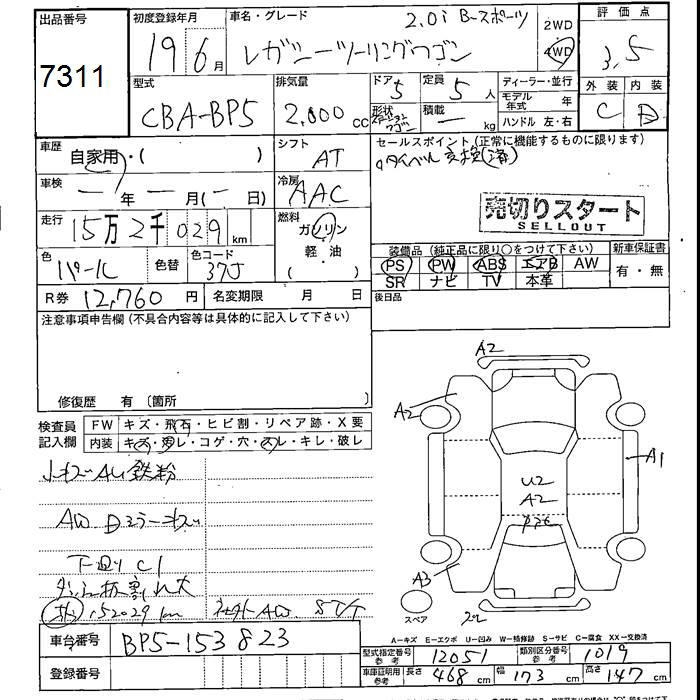 出品番号
7311
初度登録年月
19年 6月
車名・グレード
2.0i Bースポーツ
レガシーツーリングワゴン
2WD
4WD
評価点
3.5
型式
CBA-BP5
排気量
2,000 cc
ドア
5
定員
5 人
形状
積載
ー kg
ディーラー・並行
モデル年式 年
ハンドル 左・右
外装
C
内装
D
車歴
自家用・( )
シフト
AT
セールスポイント (正常に機能するものに限ります)
タイベル交換(済)
車検
ー 年 ー 月(ー 日)
冷房
AAC
売切りスタート
SELLOUT
走行
15万2千029 km
燃料
ガソリン
軽・油
( )
色
パール
色替
色コード
37J
装備品 (純正品に限り○をつけて下さい)
新車保証書
PS PW ABS エアB AW
SR ナビ TV 本革
有・無
R券 12,760 円
名変期限 月 日
後日品
注意事項申告欄 (不具合内容等は具体的に記入して下さい)
修復歴 有 〔箇所 〕
検査員記入欄
FW キズ・飛石・ヒビ割・リペア跡・X要
内装 キズ・汚レ・コゲ・穴・スレ・キレ・破レ
小キズ AU 鉄粉
AW Dミラーキズ
下回りC1
152029 km 社外AW
A2
A2
A1
U2
A2
A3
スペア
A－キズ E－エクボ U－凹み W－補修跡 S－サビ C－腐食 XX－交換済
車台番号 BP5-153823
登録番号
型式指定番号 参考 12051
類別区分番号 参考 1019
車庫証明用 参考 長さ 468 cm 幅 173 cm 高さ 147 cm